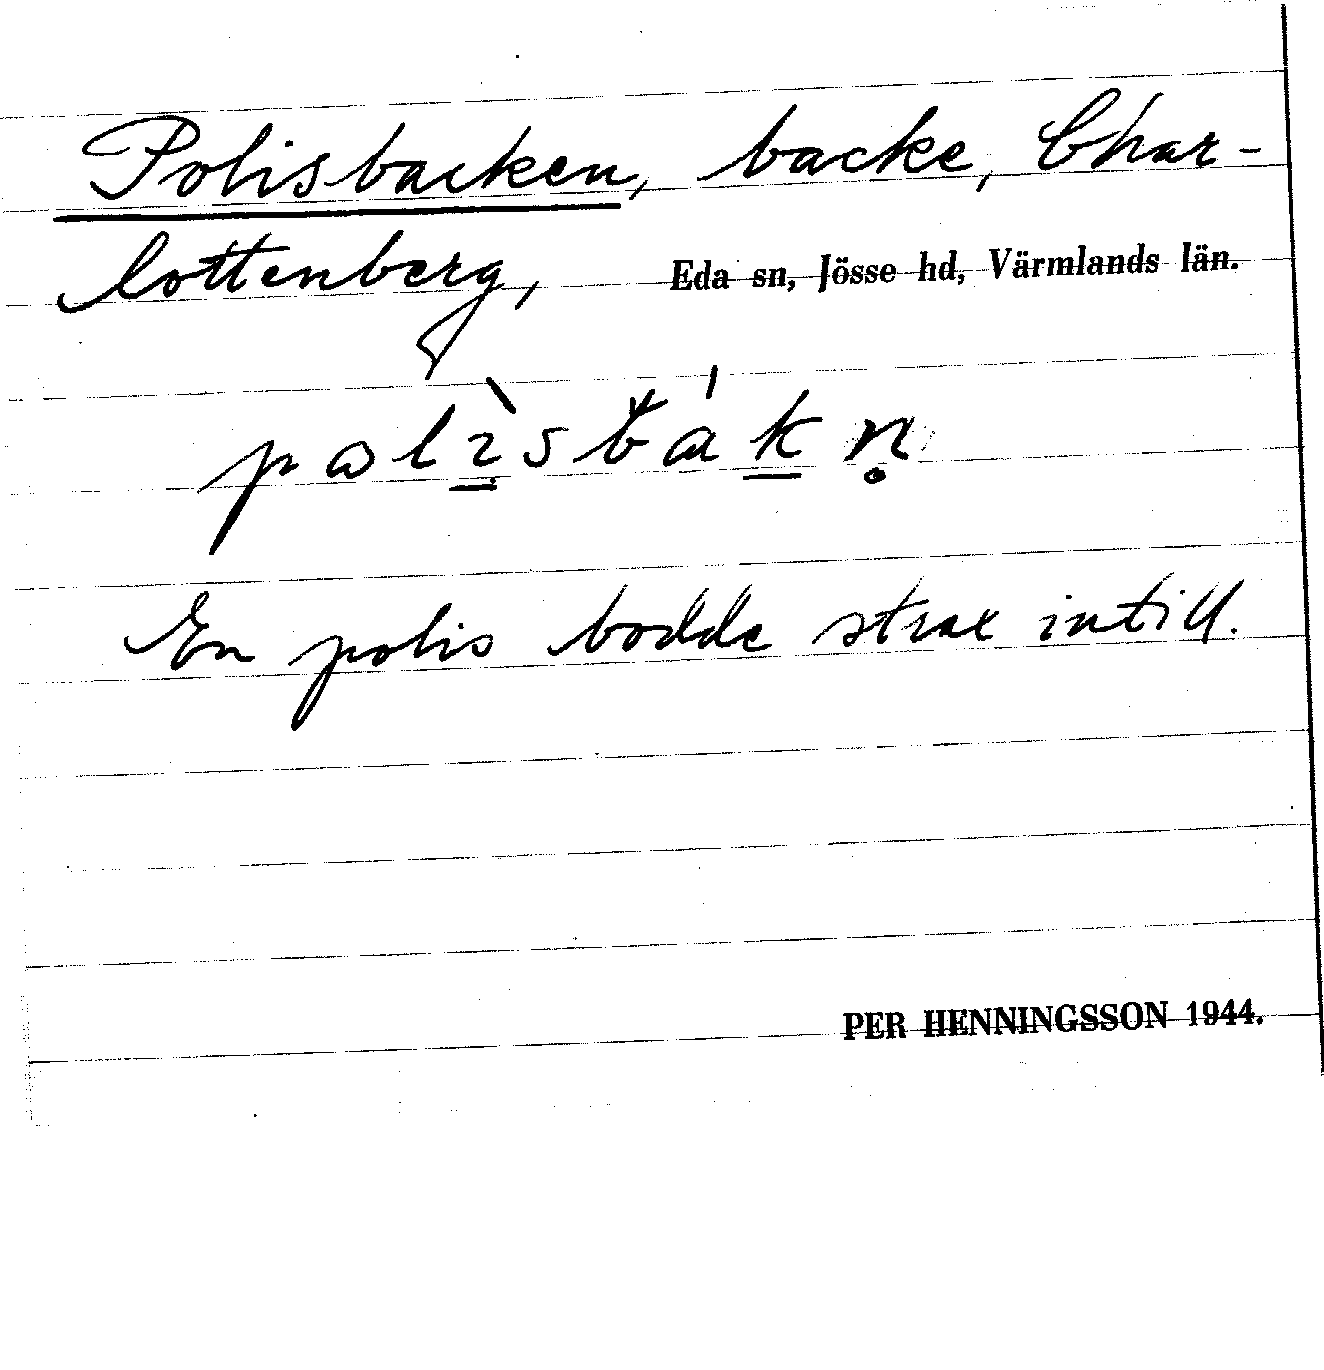 Polisbacken, backe, Char-
lottenberg, Eda sn, Jösse hd, Värmlands län.
En polis bodde strax intill.
PER HENNINGSSON 1944.